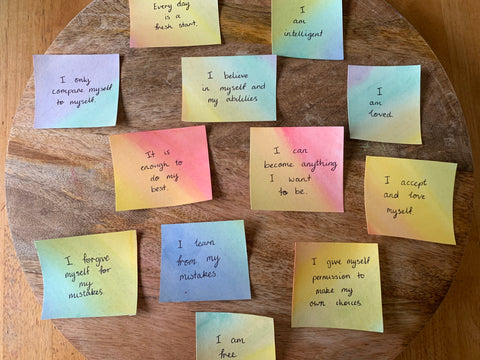 Every day
is a
fresh start.
I
am
intelligent
I only
compare myself
to myself.
I believe
in myself and
my abilities
I
am
loved.
It is
enough to
do my
best.
I can
become anything
I want
to be.
I accept
and love
myself.
I forgive
myself for
my
mistakes.
I learn
from my
mistakes.
I give myself
permission to
make my
own choices.
I am
free